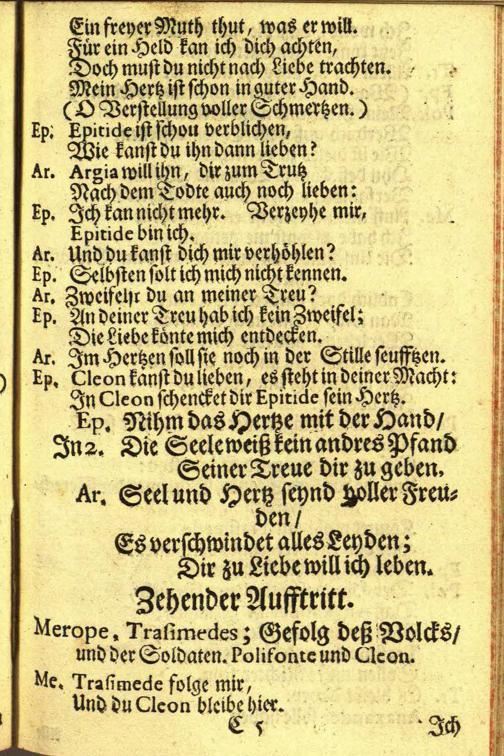 Ein freyer Muth thut, was er will.
Für ein Held kan ich dich achten,
Doch must du nicht nach Liebe trachten.
Mein Hertz ist schon in guter Hand.
(O Verstellung voller Schmertzen.)
Ep. Epitide ist schou verblichen,
Wie kanst du ihn dann lieben?
Ar. Argia will ihn, dir zum Trutz
Nach dem Todte auch noch lieben:
Ep. Ich kan nicht mehr. Verzeyhe mir,
Epitide bin ich.
Ar. Und du kanst dich mir verhöhlen?
Ep. Selbsten solt ich mich nicht kennen.
Ar. Zweifelst du an meiner Treu?
Ep. An deiner Treu hab ich kein Zweifel;
Die Liebe könte mich entdecken.
Ar. Im Hertzen soll sie noch in der Stille seufftzen.
Ep. Cleon kanst du lieben, es steht in deiner Macht:
In Cleon schencket dir Epitide sein Hertz.
Ep. Nihm das Hertze mit der Hand/
In 2. Die Seele weiß kein andres Pfand
Seiner Treue dir zu geben.
Ar. Seel und Hertz seynd voller Freu-
den/
Es verschwindet alles Leyden;
Dir zu Liebe will ich leben.
Zehender Aufftritt.
Merope, Trasimedes; Gefolg deß Volcks/
und der Soldaten. Polifonte und Cleon.
Me. Trasimede folge mir,
Und du Cleon bleibe hier.
C 5 Ich